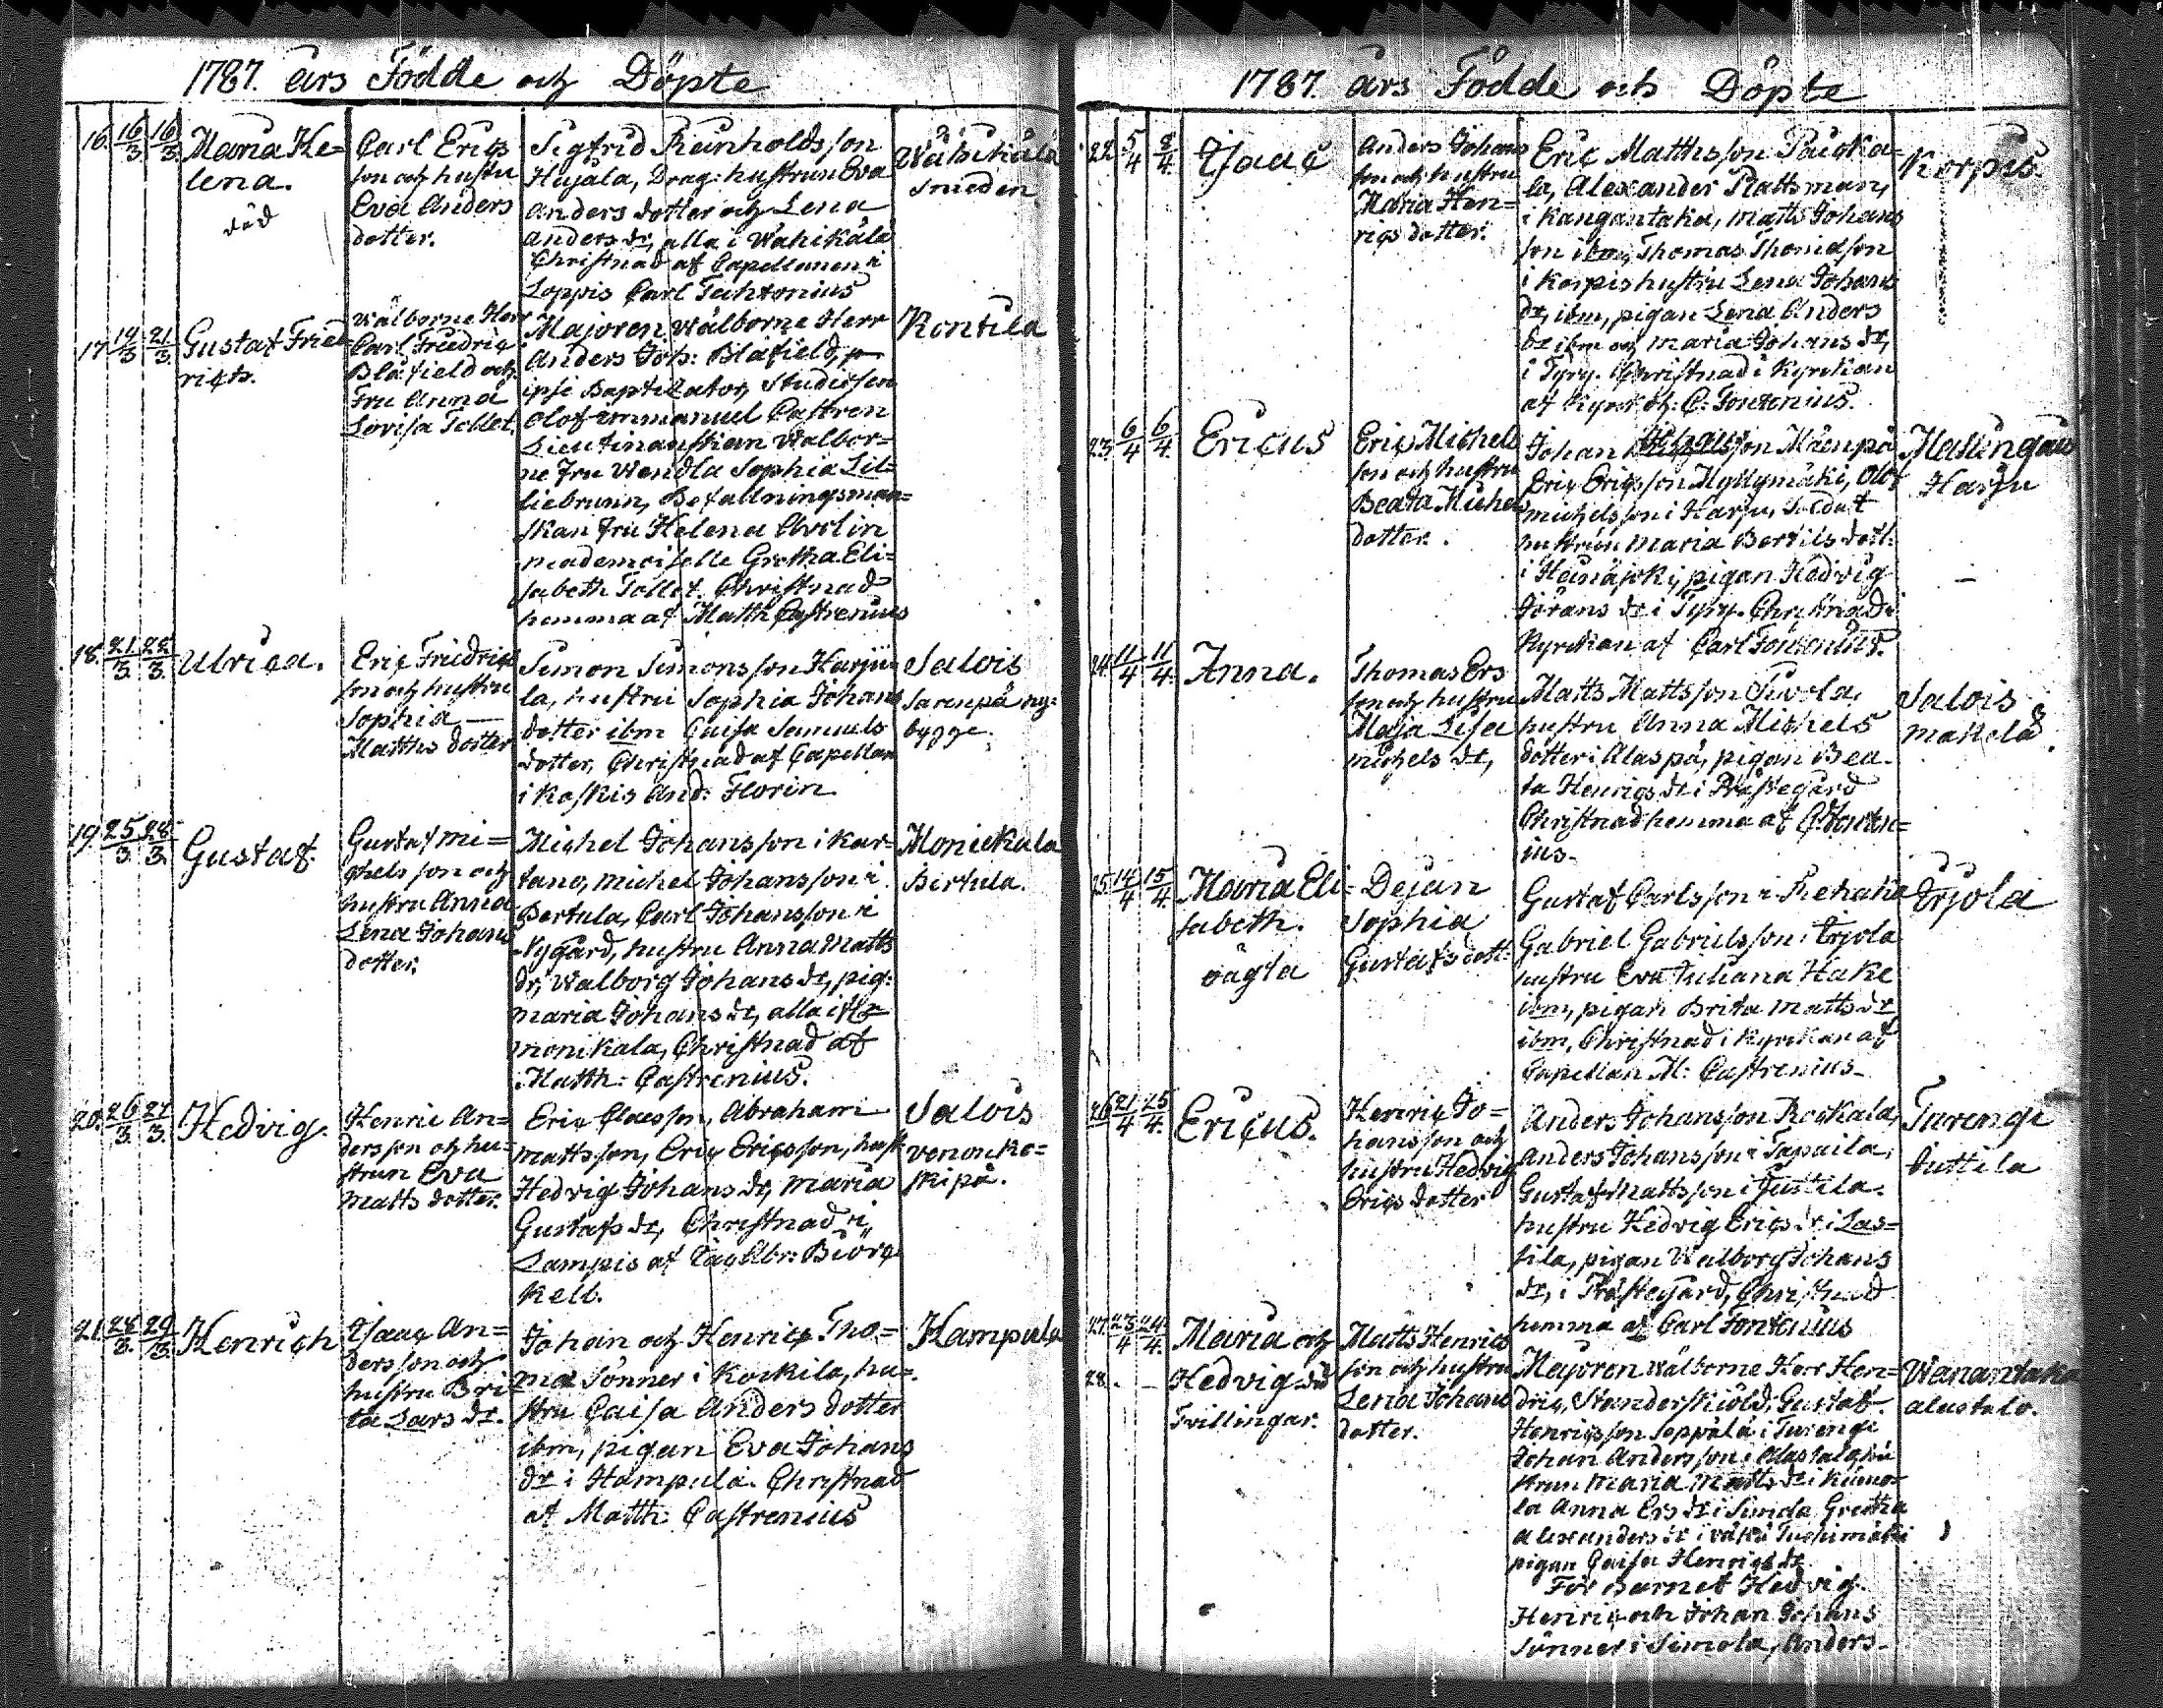 1787. års Födde och Döpte
16. 16/3 16/3 Maria He=
lena.
död
Carl Erics
son och hustru
Eva Anders
dotter.
Sigfrid Reinholdsson
Hujala, Drag: hustrun Eva
Anders dotter och Lena
Anders dr, alla i Wähikälä
Christnad af Capellanen i
Loppis Carl
Wähikälä
smeden
17 14/3 21/3 Gustaf Fried
richs.
Wälborne Herr
Carl Friedric
Blåfield och
Fru Anna
Lovisa Tollet.
Majoren Wälborne Herr
Anders Joh: Blåfield, p
ipse Baptizator, Studiosen
Olof Emmanuel Castren
Lieutinantskan Walbor=
ne Fru Wendla Sophia Lil=
liebrunn, Befallningsman=
skan Fru Helena Avelin
mademoiselle Gretha Eli=
sabeth Tollet. Christnad
hemma af Matth Castrenius
Kontila
18. 21/3 22/3 Ulrica.
Eric Fridrics
son och hustru
Sophia
Matths dotter
Simon Simonsson Harju=
la, hustru Sophia Johans
dotter ibm Caisa Samuels
dotter, Christnad af Capellan
i Koskis And: Florin
Salois
Sarenpä ny=
bygge.
19. 25/3 28/3 Gustaf.
Gustaf Mi=
chels son och
hustru Anna
Lena Johans
dotter.
Michel Johansson i Kar=
tano, Michel Johansson i
Pertula, Carl Johansson i
Nygård, hustru Anna Matts
dr, Walborg Johans dr, pig:
Maria Johans dr, alla i Mo=
nonikala, Christnad af
Matth: Castrenius.
Monickala
Pertula.
20. 26/3 27/3 Hedvig.
Henric An=
dersson och hu=
strun Eva
Matts dotter.
Eric Claesson, Abraham
Mattsson, Eric Ericsson, hust
Hedvig Johans dr, Maria
Gustafs dr, Christnad i
Lampis af Abr: Biörc
kell.
Salois
=
skipä.
21. 28/3 29/3 Henrich
Isaac An=
dersson och
hustru Bri=
ta Lars dr.
Johan och Henric Tho=
mæ Sönner i Kockila, hu=
stru Caisa Anders dotter
ibm, pigan Eva Johans
dr i Hampula. Christnad
af Matth: Castrenius
Hampula
1787. års Födde och Döpte
22. 5/4 8/4 Isaac
Anders Johans
son och hustru
Maria Hen=
rics dotter.
Eric Matthsson Paicka=
la, Alexander Rattsman,
i Kangantaka, Matts Johans
son ibm, Thomas Thomasson
i Korpis hustru Lena Johans
dr, ibm, pigan Lena Anders
dr ibm och Maria Johans dr,
i Tyry. Christnad i Kyrckian
af C: Fontenius.
Korpis.
23. 6/4 6/4 Ericus
Eric Michels
son och hustru
Beata Michels
dotter.
Johan son Mäenpä
Eric Ericsson Myllymäki, Olof
Michelsson i Harju, Soldat
hustrun Maria Bertils dott:
i Heinäjoki, pigan Hedvig
Jörans dr i Tyry. Christnad i
Kyrckian af Carl Fontenius.
Hallingais
Harju
24. 11/4 11/4 Anna.
Thomas Ers
son och hustru
Maja Lisa
Michels dr,
Matts Mattsson Sivola,
hustru Anna Michels
dotter i Alaspä, pigan Bea=
ta Henrics dr i Prästegård
Christnad hemma af C: Fonten=
ius.
Salois
Makelä.
25. 14/4 15/4 Maria Eli=
sabeth.
oägta
Dejan
Sophia
Gustafs dott:
Gustaf Carlsson i
Gabriel Gabrielsson i Erjola
hustru Eva Juliana Hake
ibm, pigan Brita Matts dr
ibm, Christnad i Kyrckian af
Capellan M: Castrenius.
Erjola
26. 21/4 25/4 Ericus.
Henric Jo=
hansson och
hustru Hedvig
Erics dotter
Anders Johansson Rockala,
Anders Johansson i Tapaila,
Gustaf Mattsson i Juttila.
hustru Hedvig Erics dr i Las=
sila, pigan Walborg Johans
dr, i Prästegård, Christnad
hemma af Carl Fontenius
Turengi
Juttila
27. 23/4 24/4 Maria och
28. - Hedvig
Tvillingar.
Matts Henrics
son och hustru
Lena Johans
dotter.
Majoren Wälborne Herr Hen=
dric, Standerskiöld, Gustaf
Henricsson Seppälä i Turengi
Johan Andersson i Alastalo hu
strun Maria Matts dr i
la Anna Ers dr i Simola Gretha
Alexanders dr i
pigan Caisa Henrics dr.
För Barnet Hedvig.
Henric och Johan Johans
Sönner i Simola, Anders
Wanantaka
alastalo.